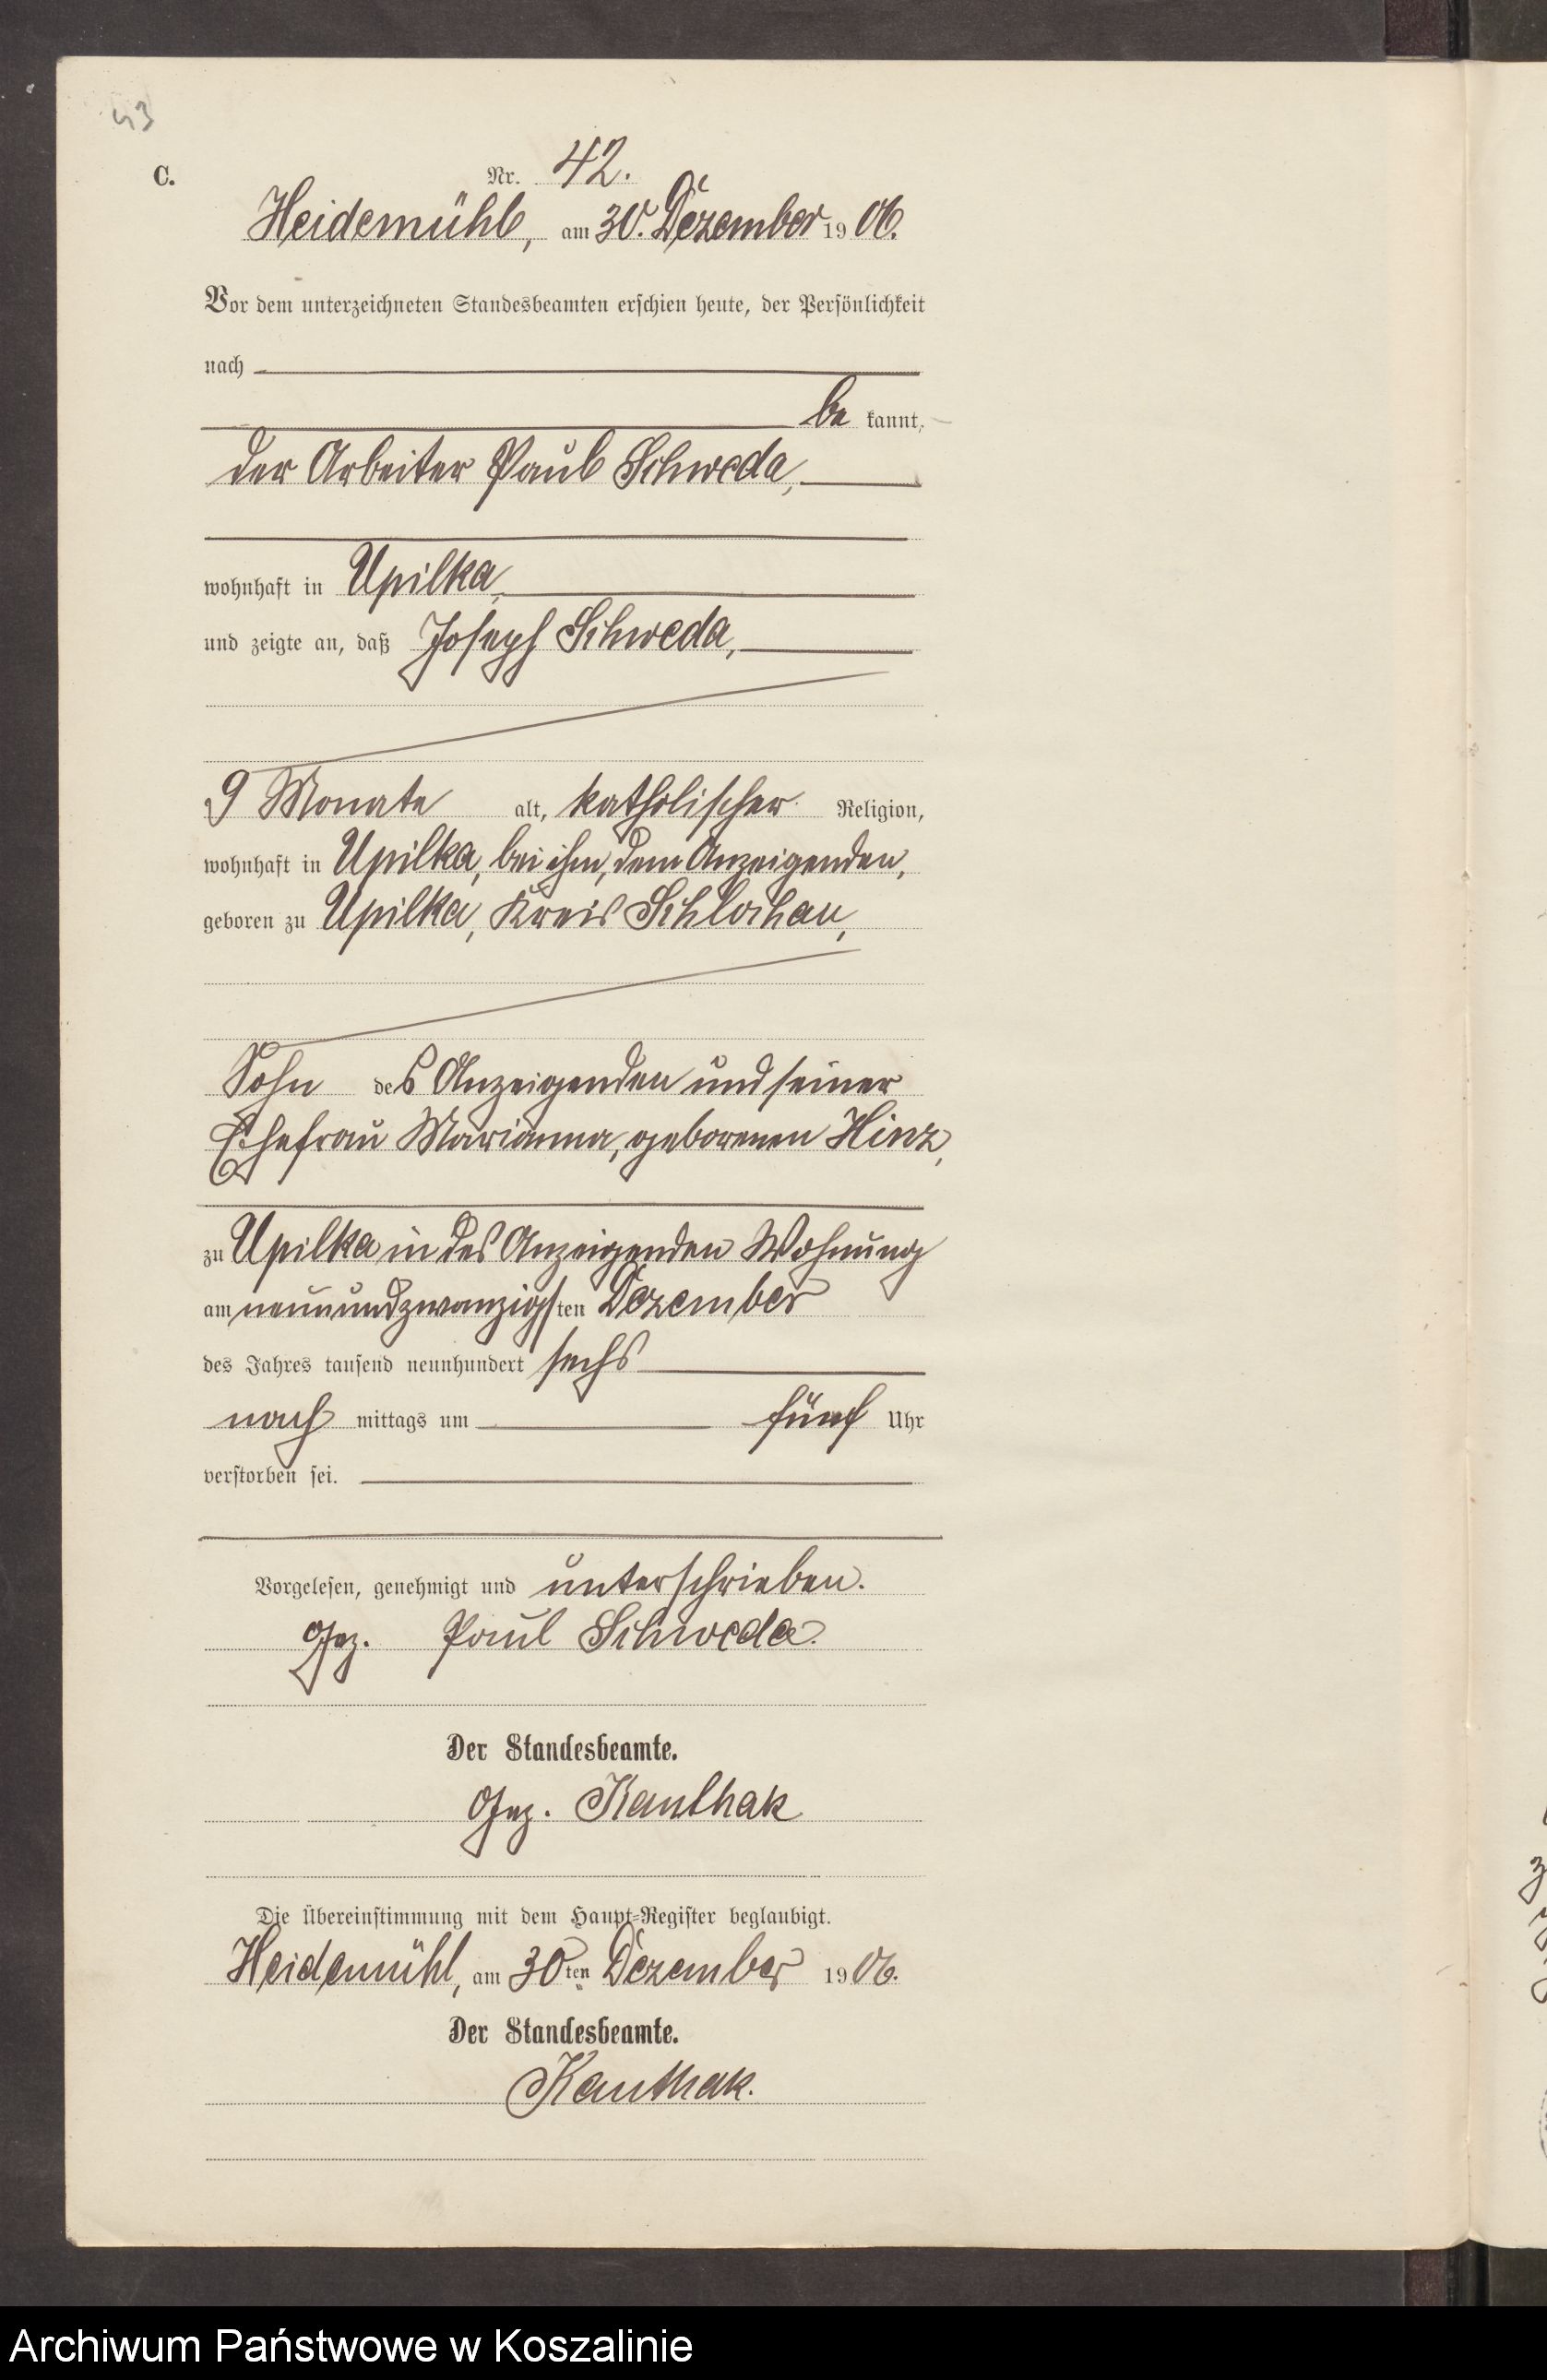 43
C.
Nr. 42.
Heidemühl, am 30. Dezember 1906.
Vor dem unterzeichneten Standesbeamten erschien heute, der Persönlichkeit
nach
be kannt,
der Arbeiter Paul Schweda,
wohnhaft in Upilka,
und zeigte an, daß Joseph Schweda,
9 Monate alt, katholischer Religion,
wohnhaft in Upilka, bei ihm, dem Anzeigenden,
geboren zu Upilka, Kreis Schlochau,
Sohn des Anzeigenden und seiner
Ehefrau Marianna, geborenen Hinz,
zu Upilka in des Anzeigenden Wohnung
am neunundzwanzigsten Dezember
des Jahres tausend neunhundert sechs
nach mittags um fünf Uhr
verstorben sei.
Vorgelesen, genehmigt und unterschrieben.
Gez. Paul Schweda.
Der Standesbeamte.
Gez. Kauthak
Die Übereinstimmung mit dem Haupt-Register beglaubigt.
Heidemühl, am 30ten Dezember 1906.
Der Standesbeamte.
Kauthak.
Archiwum Państwowe w Koszalinie